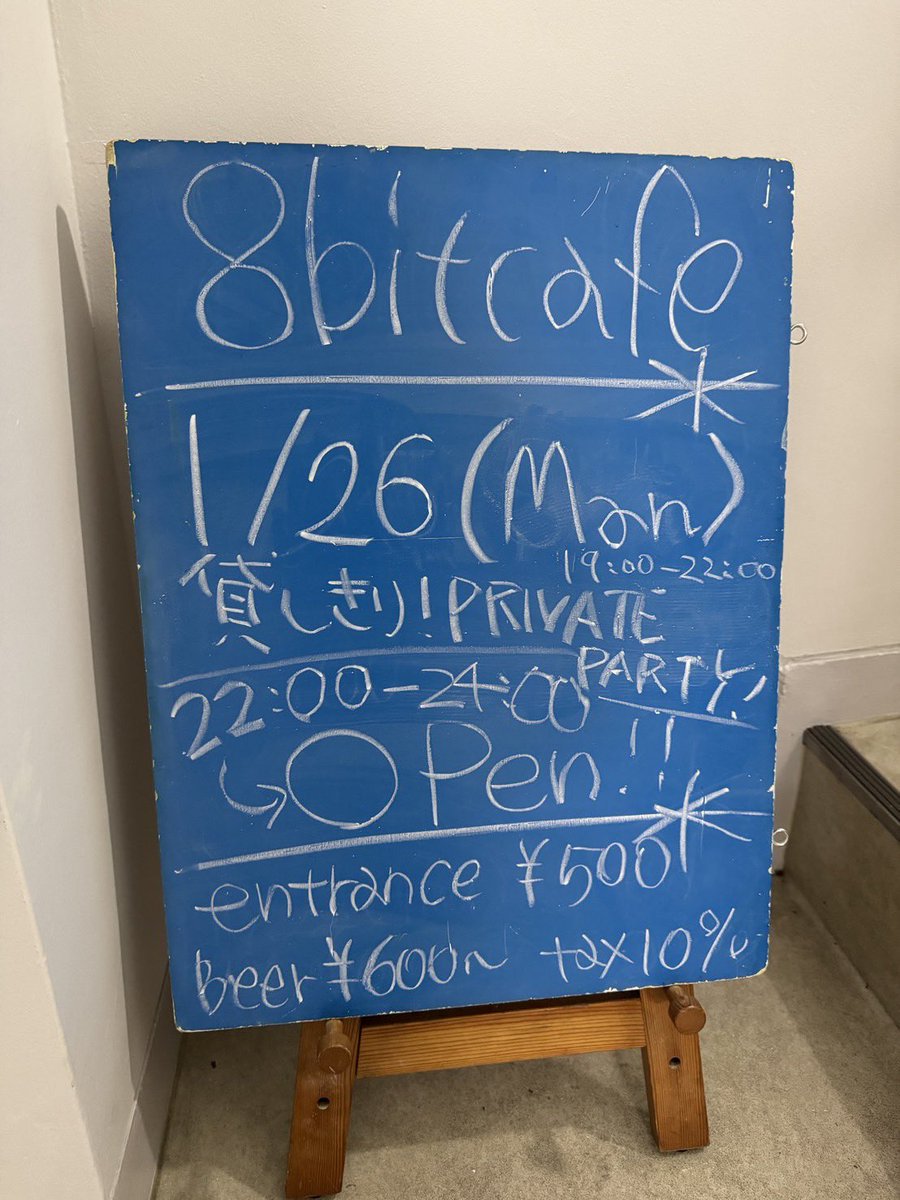 8bitcafe
1/26(Man)
19:00-22:00
貸しきり!PRIVATE
PARTY!
22:00-24:00
Open!!
entrance ¥500
beer ¥600~ tax10%